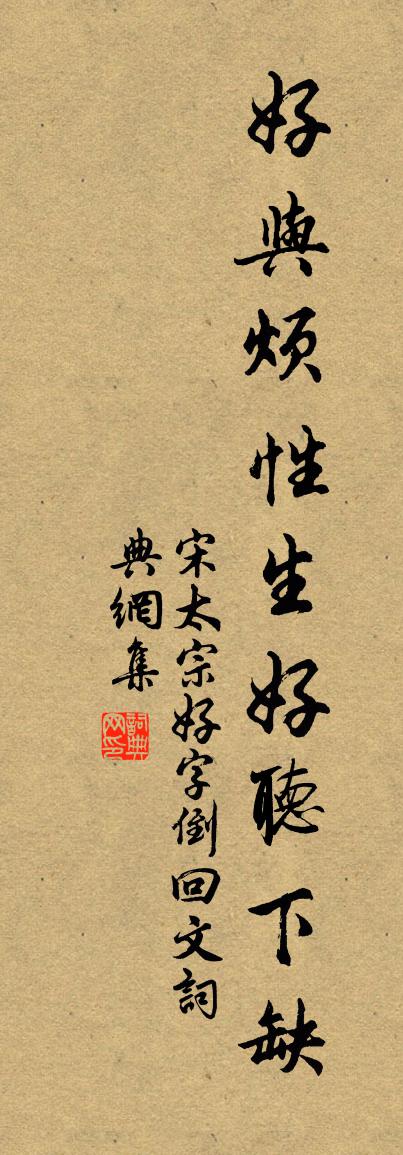 好與煩性生好聽下缺
宋太宗好字倒回文詞
典網集
詞典網印